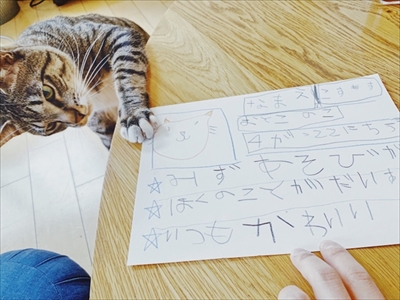 なまえ こてつ
おとこのこ
4がつ22にち
☆みずあそびが
☆ぼくのことがだいす
☆いつもかわいい